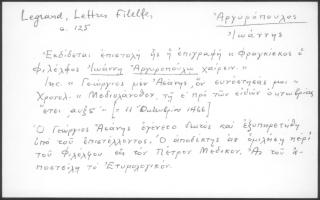 Legrand, Lettres Filelfe,
σ. 125
Ἀργυρόπουλος
Ἰωάννης
Ἐκδίδεται ἐπιστολὴ ἧς ἡ ἐπιγραφὴ « Φραγκίσκος ὁ
Φιλέλφος Ἰωάννῃ Ἀργυροπούλῳ χαίρειν. »
Inc. « Γεώργιος μὲν Ἀσάνης, ὃν συνέστησάς μοι »
Χρονολ. « Μεδιολάνοθεν, τῇ ε' πρὸ τῶν εἰδῶν ὀκτωβρίας
ἔτει ,αυξϚ' » [= 11 Ὀκτωβρίου 1466]
Ὁ Γεώργιος Ἀσάνης ἐγένετο δεκτὸς καὶ ἐξυπηρετήθη
ὑπὸ τοῦ ἐπιστέλλοντος. Ὁ ἀποδέκτης ἂς ὁμιλήσῃ περὶ
τοῦ Φιλέλφου εἰς τὸν Πέτρον Μέδικον. Ἂς τοῦ ἀ-
ποστείλῃ τὸ Ἐτυμολογικόν.